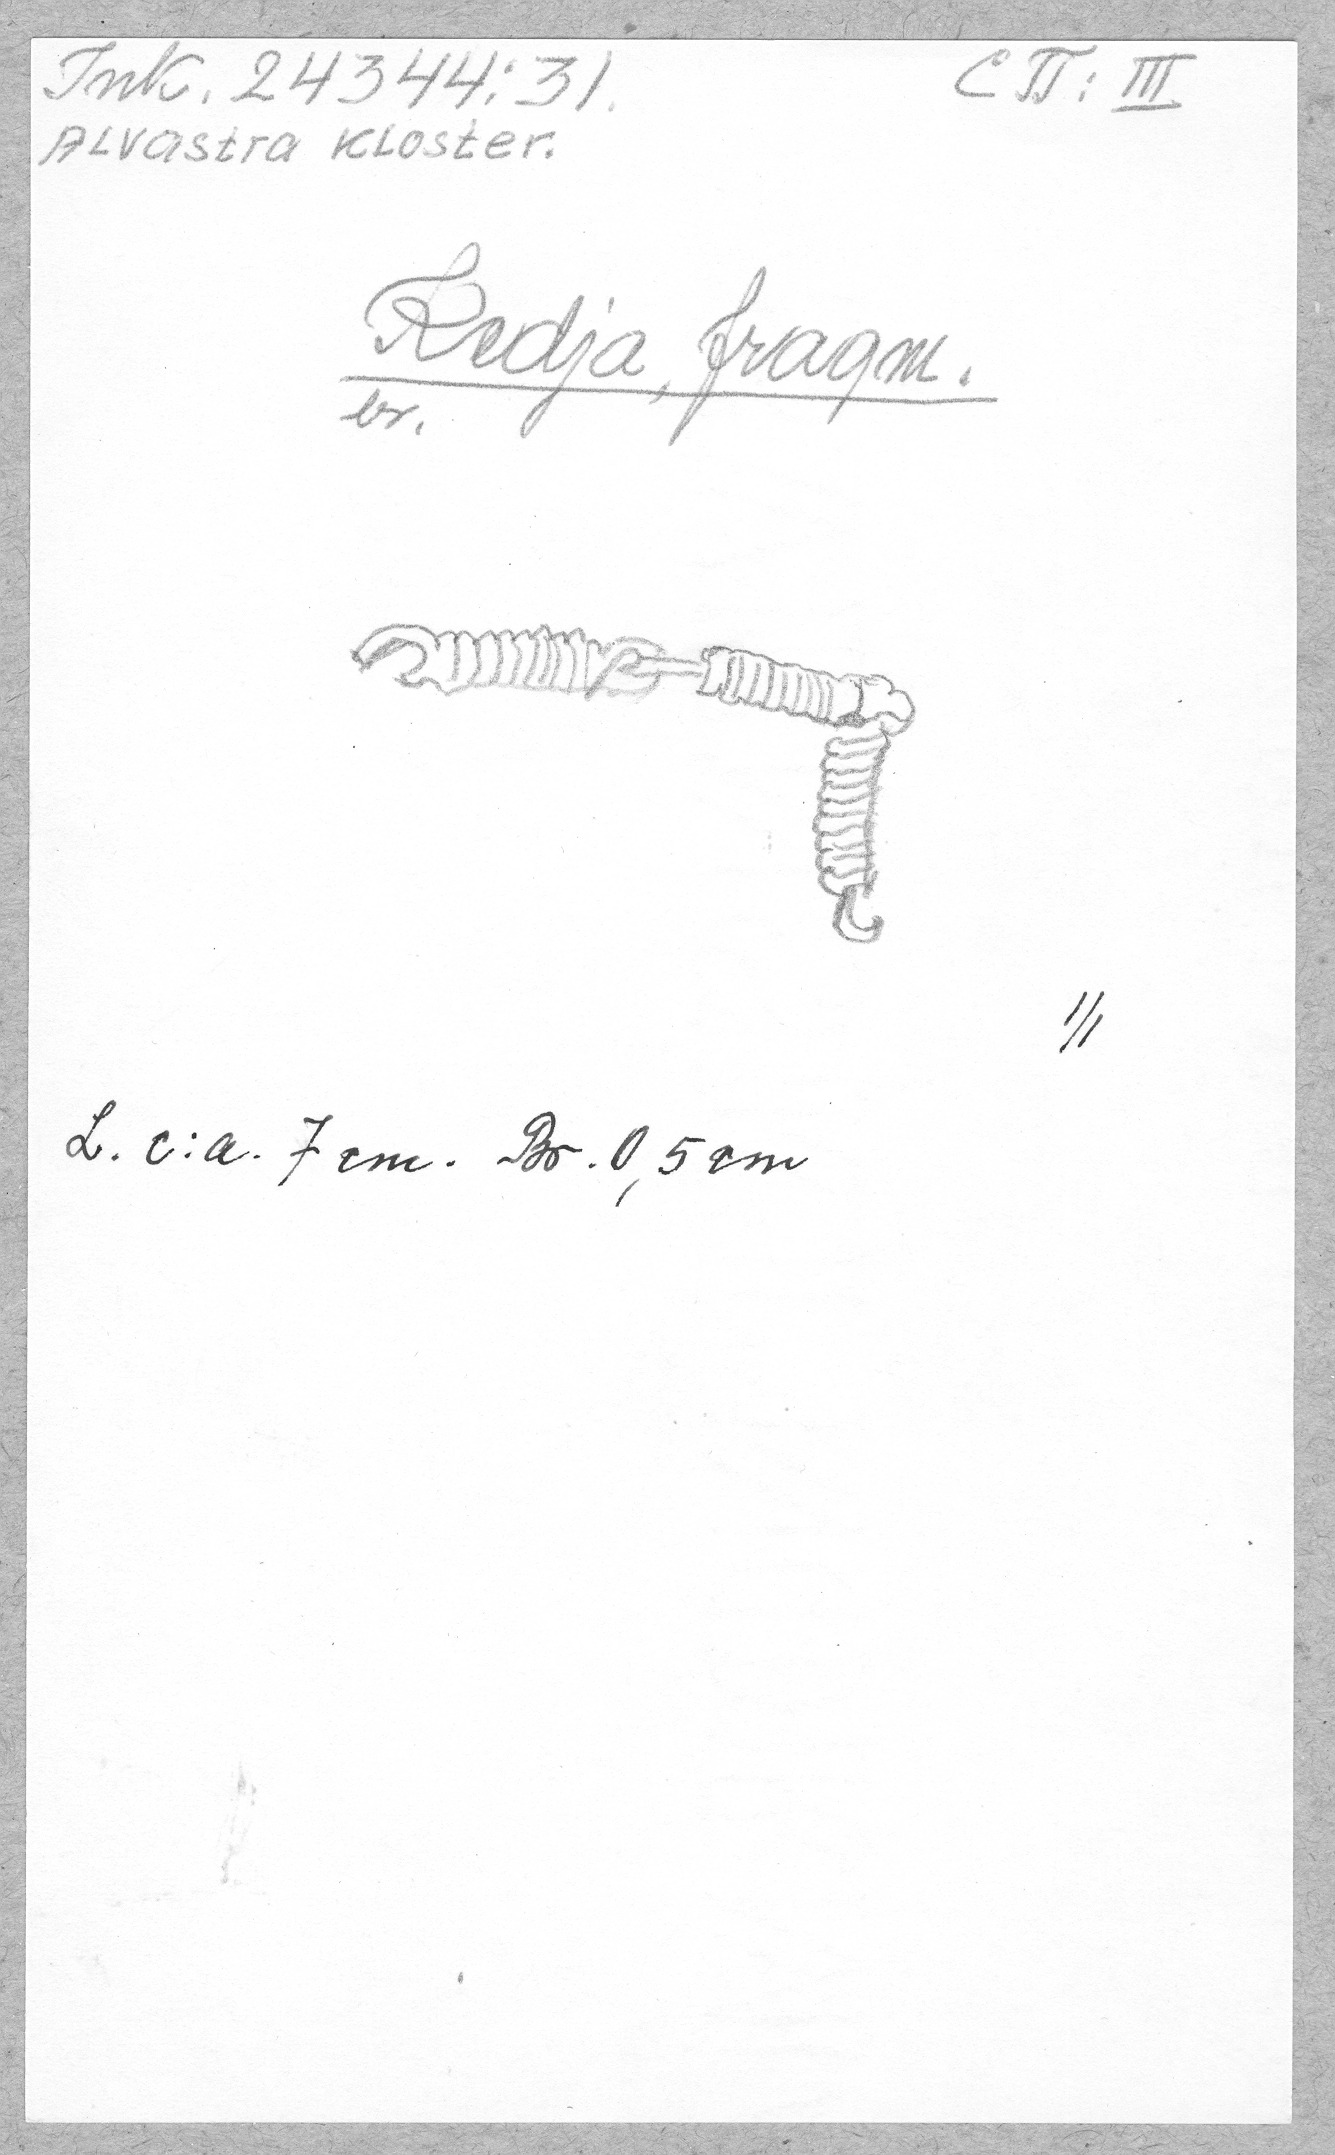 Ink. 24344:31.
C II: III
Alvastra Kloster.
Kedja, fragm.
br.
1/1
L. c:a. 7 cm. Br. 0,5 cm